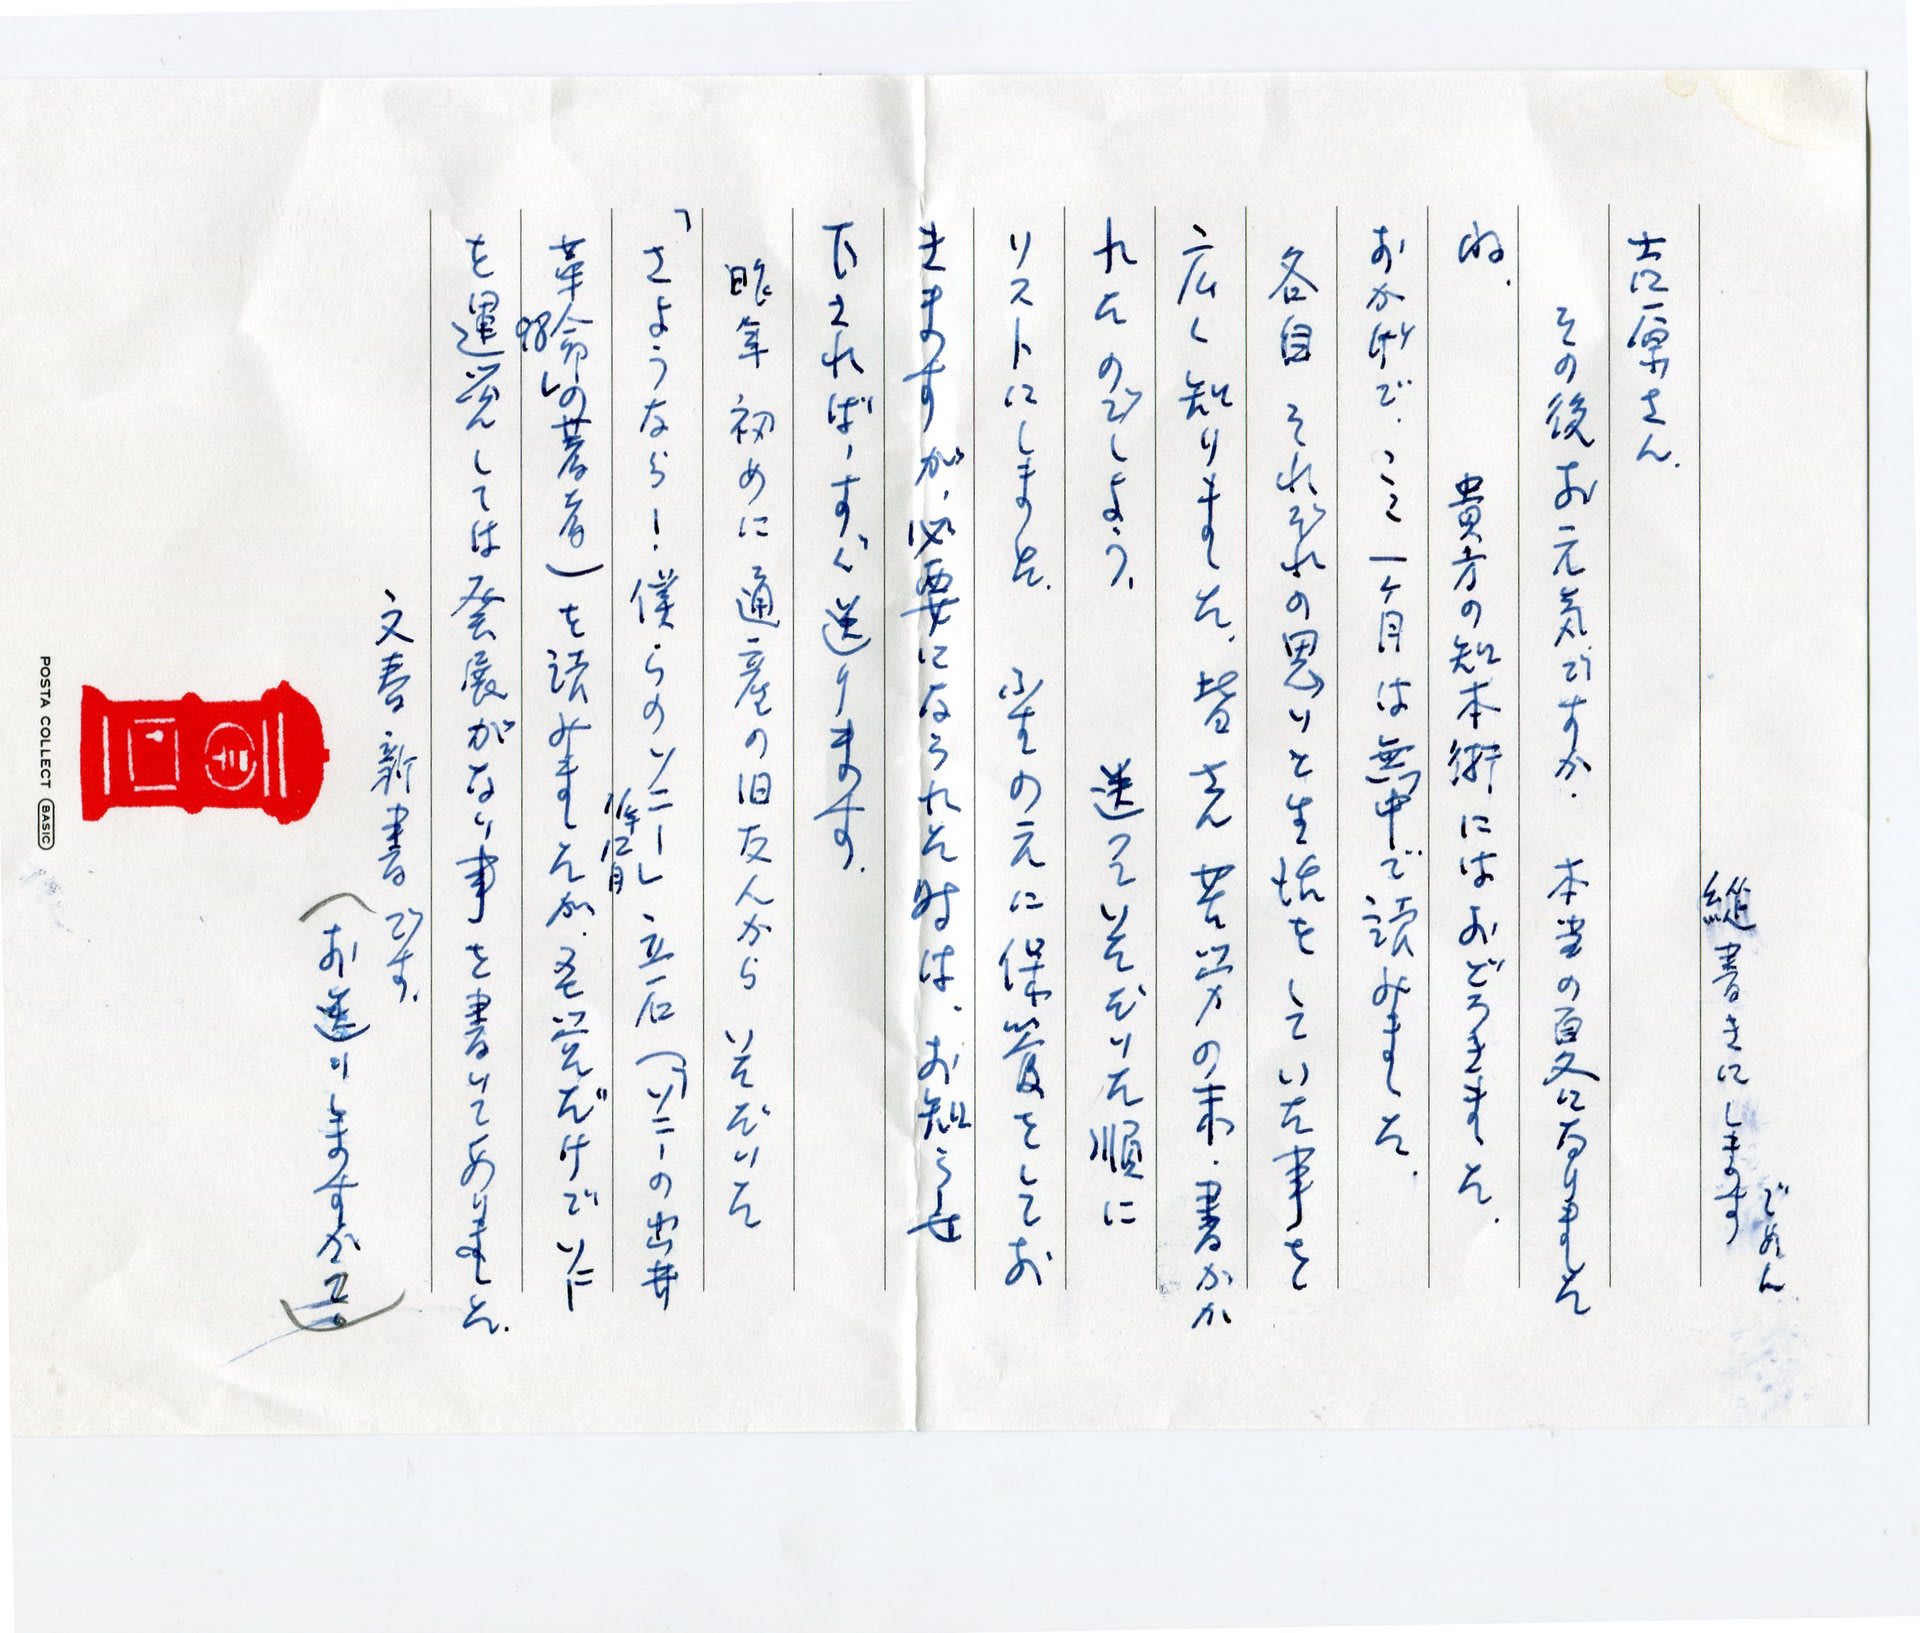 縦書きにします
ごめん
吉原さん.
その後お元気ですか. 本当の夏になりました
ね. 貴方の製本術にはおどろきました.
おかげで、ここ一ヶ月は夢中で読みました.
各自 それぞれの思いと生活をしていた事を
広く知りました. 皆さん 苦労の末、書かか
れたのでしょう. 送っていただいた順に
リストにしました. 小生の元に保管をしてお
きますが、必要になられた時は、お知らせ
下されば、すぐ送ります.
昨年 初めに通産の旧友人から いただいた
「さようなら!僕らのソニー」立石(「ソニーの出井
11年12月
革命」の著者)を読みましたが、経営だけでソニー
98
を運営しては発展がない事を書いてありました.
文春新書です.
(お送りしますか?)
POSTA COLLECT BASIC